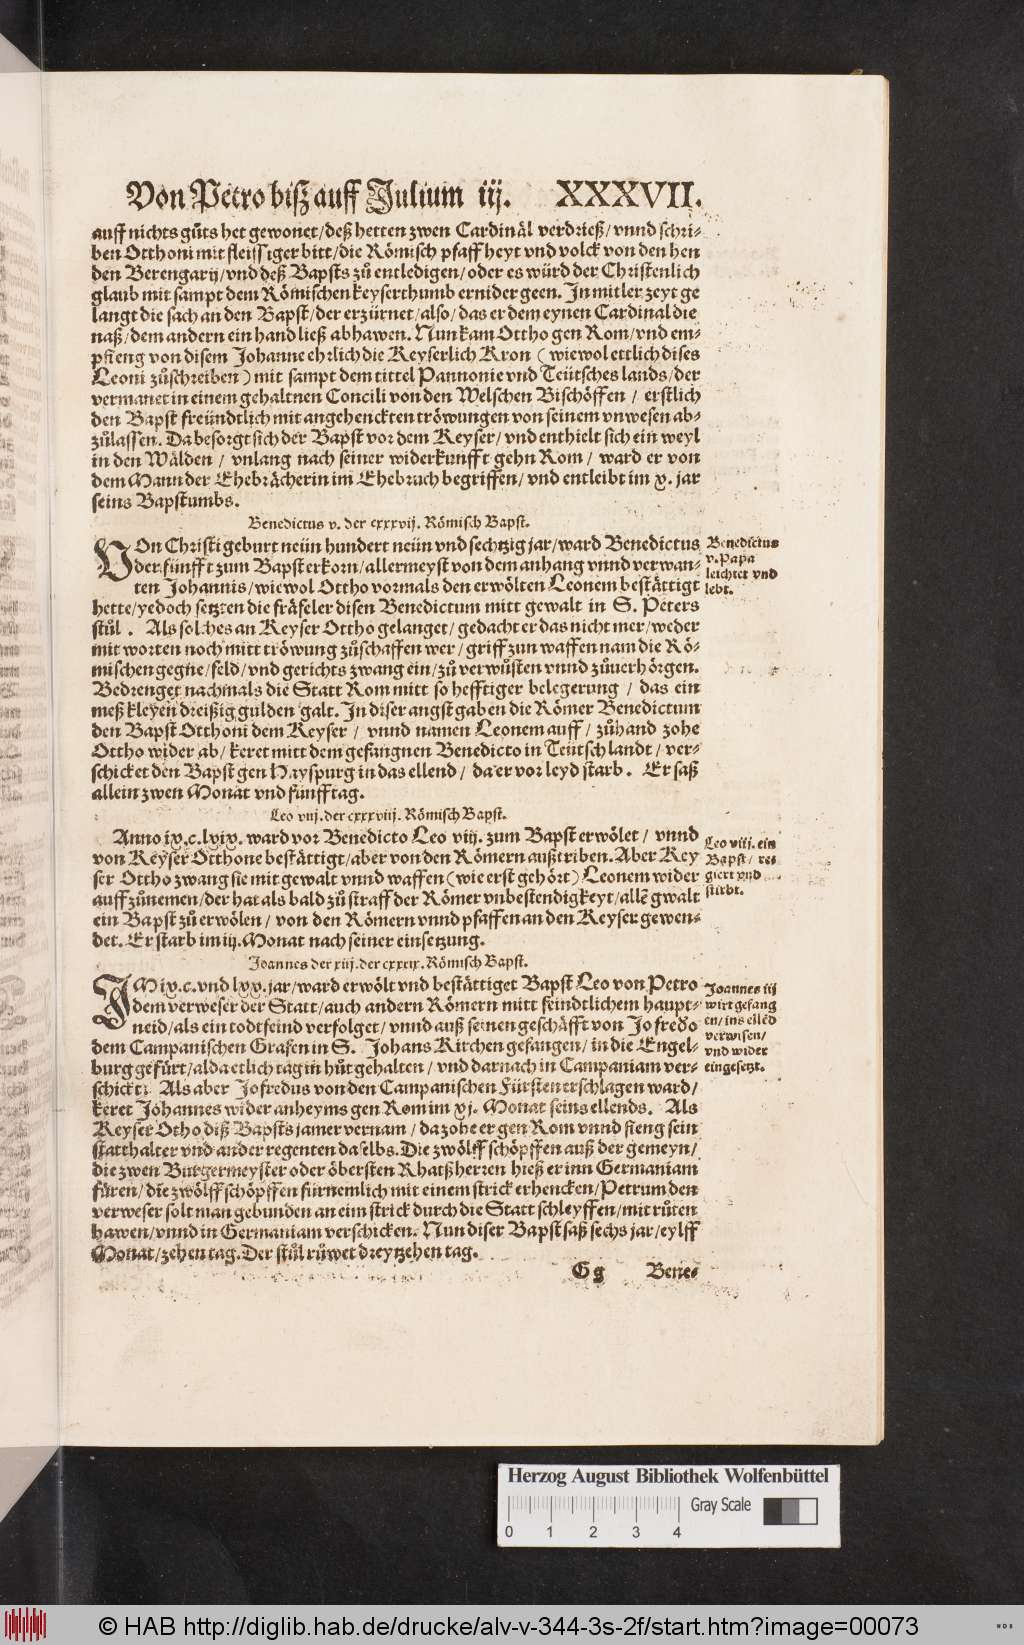 Von Petro biß auff Julium iij. XXXVII.
auff nichts gůts het gewonet/deß hetten zwen Cardinäl verdrieß/vnnd schri-
ben Otthoni mit fleissiger bitt/die Römisch pfaffheyt vnd volck von den hen
den Berengarij/vnd deß Bapsts zů entledigen/oder es würd der Christenlich
glaub mit sampt dem Römischen keyserthumb ernider geen. In mitler zeyt ge
langt die sach an den Bapst/der erzürnet/also/das er dem eynen Cardinal die
naß/dem andern ein hand ließ abhawen. Nun kam Ottho gen Rom/vnd em-
pfieng von disem Johanne ehrlich die Keyserlich Kron (wiewol ettlich dises
Leoni zůschreiben) mit sampt dem tittel Pannonie vnd Teütsches lands/der
vermanet in einem gehaltnen Concili von den Welschen Bischöffen / erstlich
den Bapst freündtlich mit angehenckten tröwungen von seinem vnwesen ab-
zůlassen. Da besorgt sich der Bapst vor dem Keyser/vnd enthielt sich ein weyl
in den Wälden / vnlang nach seiner widerkunfft gehn Rom / ward er von
dem Mann der Ehebrächerin im Ehebruch begriffen/vnd entleibt im x. jar
seins Bapstumbs.
Benedictus v. der cxxxvij. Römisch Bapst.
VOn Christi geburt neün hundert neün vnd sechtzig jar/ward Benedictus
der fünfft zum Bapst erkorn/allermeyst von dem anhang vnnd verwan-
ten Johannis/wiewol Ottho vormals den erwölten Leonem bestättigt
hette/yedoch setzten die fräfeler disen Benedictum mitt gewalt in S. Peters
stůl. Als solches an Keyser Ottho gelanget/gedacht er das nicht mer/weder
mit worten noch mitt tröwung zůschaffen wer/griff zun waffen nam die Rö-
mischen gegne/feld/vnd gerichts zwang ein/zů verwůsten vnnd zůuerhörgen.
Bedrenget nachmals die Statt Rom mitt so hefftiger belegerung / das ein
meß kleyen dreißig gulden galt. In diser angst gaben die Römer Benedictum
den Bapst Otthoni dem Keyser / vnnd namen Leonem auff / zůhand zohe
Ottho wider ab/keret mitt dem gefangnen Benedicto in Teütschlandt/ver-
schicket den Bapst gen Hayspurg in das ellend / da er vor leyd starb. Er saß
allein zwen Monat vnd fünff tag.
Leo viij. der cxxxviij. Römisch Bapst.
Anno ix.c.lxix. ward vor Benedicto Leo viij. zum Bapst erwölet / vnnd
von Keyser Otthone bestättigt/aber von den Römern außtriben. Aber Key
ser Ottho zwang sie mit gewalt vnnd waffen (wie erst gehört) Leonem wider
auff zůnemen/der hat als bald zů straff der Römer vnbestendigkeyt/allē gwalt
ein Bapst zů erwölen / von den Römern vnnd pfaffen an den Keyser gewen-
det. Er starb im iij. Monat nach seiner einsetzung.
Joannes der xiij. der cxxxix. Römisch Bapst.
IM ix.c. vnd lxx. jar/ward erwölt vnd bestättiget Bapst Leo von Petro
dem verweser der Statt/auch andern Römern mitt feindtlichem haupt-
neid/als ein todtfeind verfolget/vnnd auß seinen geschäfft von Jofredo
dem Campanischen Grafen in S. Johans Kirchen gefangen/in die Engel-
burg gefürt/alda etlich tag in hůt gehalten / vnd darnach in Campaniam ver-
schickt. Als aber Jofredus von den Campanischen Fürsten erschlagen ward/
keret Johannes wider anheyms gen Rom im xj. Monat seins ellends. Als
Keyser Otho diß Bapsts jamer vernam / da zohe er gen Rom vnnd fieng sein
statthalter vnd ander regenten daselbs. Die zwölff schöpffen auß der gemeyn/
die zwen Burgermeyster oder öbersten Rhatßherren hieß er inn Germaniam
füren/die zwölff schöpffen fürnemlich mit einem strick erhencken/Petrum den
verweser solt man gebunden an eim strick durch die Statt schleyffen/mit růten
hawen/vnnd in Germaniam verschicken. Nun diser Bapst saß sechs jar/eylff
Monat/zehen tag. Der stůl růwet dreytzehen tag.
Gg Bene-
Benedictus
v. Papa
leichtet vnd
lebt.
Leo viij. ein
Bapst/ re-
giert vnd
stirbt.
Joannes iij
wirt gefang
en/ins ellēd
verwisen/
vnd wider
eingesetzt.
Herzog August Bibliothek Wolfenbüttel
Gray Scale
0 1 2 3 4
© HAB http://diglib.hab.de/drucke/alv-v-344-3s-2f/start.htm?image=00073